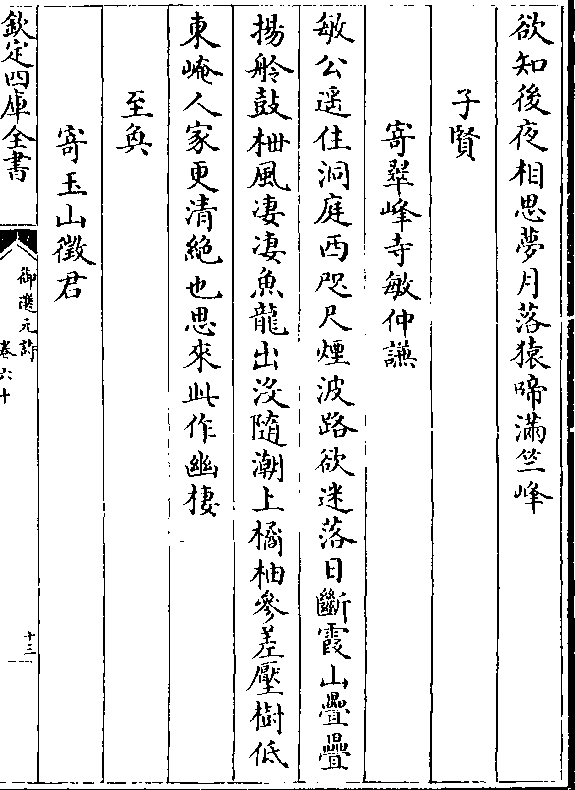 欲知後夜相思夢月落猿啼滿竺峰
子賢
寄翠峰寺敏仲謙
敏公遥住洞庭西咫尺煙波路欲迷落日斷霞山疊疊
揚舲鼓枻風凄凄魚龍出沒隨潮上橘柚參差壓樹低
東崦人家更清絶也思來此作幽棲
至奐
寄玉山徵君
欽定四庫全書
御選元詩
卷六十
十三